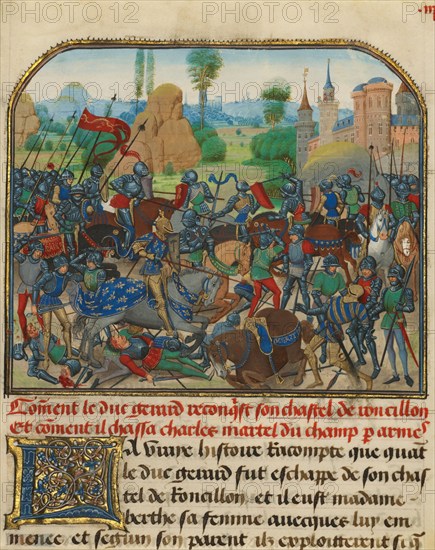 Co͞ment le duc gerard reconqſt son chastel de roncillon
Et co͞ment il chassa charles martel du champ p armes
La vraie histoire racompte que quāt
le duc gerard fut eschappe de son chas
tel de Roncillon. et il eust madame
berthe sa femme avecques luy em
menee et seguin son parent ilz exploitterent
PHOTO12